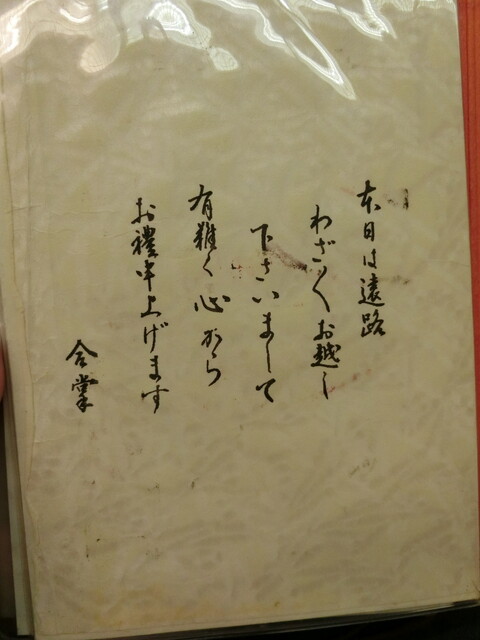 本日は遠路
わざ〳〵お越し
下さいまして
有難く心から
お禮申上げます
合掌